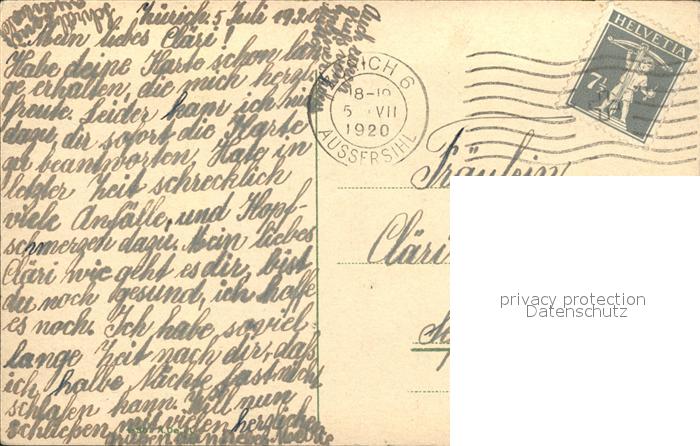 Zürich. 5 Juli 1920
Mein liebes Cläri!
Habe deine Karte schon lan-
ge erhalten, die mich herzl.
freute. Leider kam ich nie
dazu dir sofort die Karte
zu beantworten. Hate in
letzter Zeit schrecklich
viele Anfälle, und Kopf-
schmerzen dazu. Mein liebes
Cläri wie geht es dir, bist
du noch gesund, ich hoffe
es noch. Ich habe soviel
lange Zeit nach dir, daß
ich halbe Nächte fast nicht
schlafen kann. Will nun
schließen mit vielen herzlichen
HELVETIA
7½
ZÜRICH 6
18-19
5. VII
1920
AUSSERSIHL
Fräulein
Cläri
privacy protection
Datenschutz